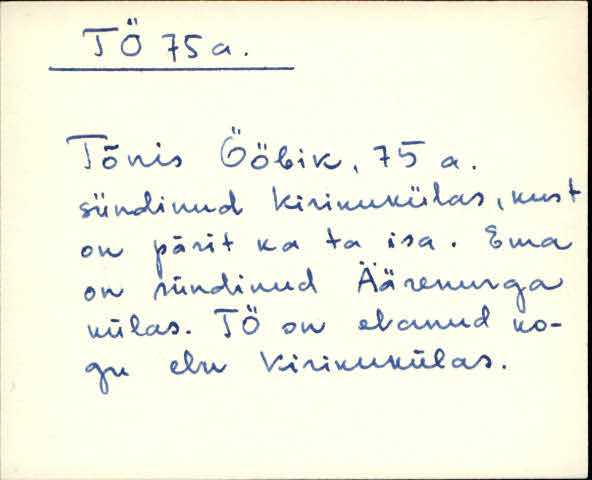 TÖ 75 a.
Tõnis Ööbik, 75 a.
sündinud Kirikukülas, kust
on pärit ka ta isa. Ema
on sündinud Äärenurga
külas. TÖ on elanud ko-
gu elu Kirikukülas.